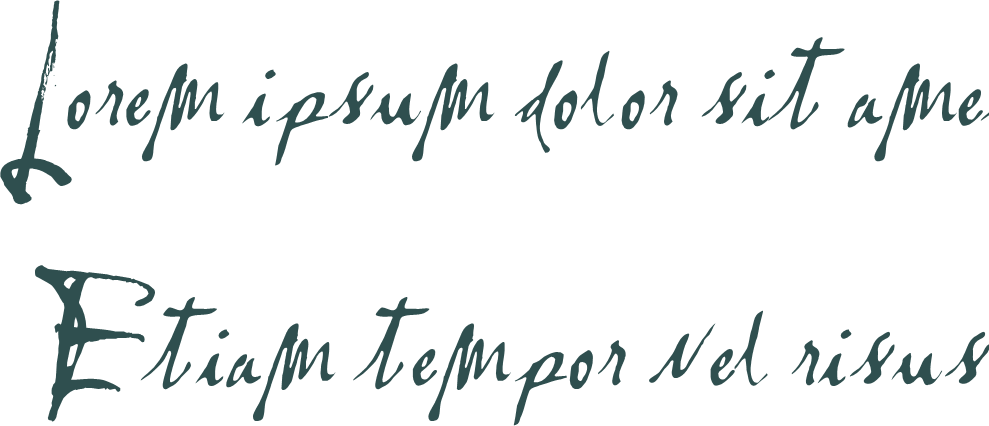 Lorem ipsum dolor sit ame
Etiam tempor vel risus